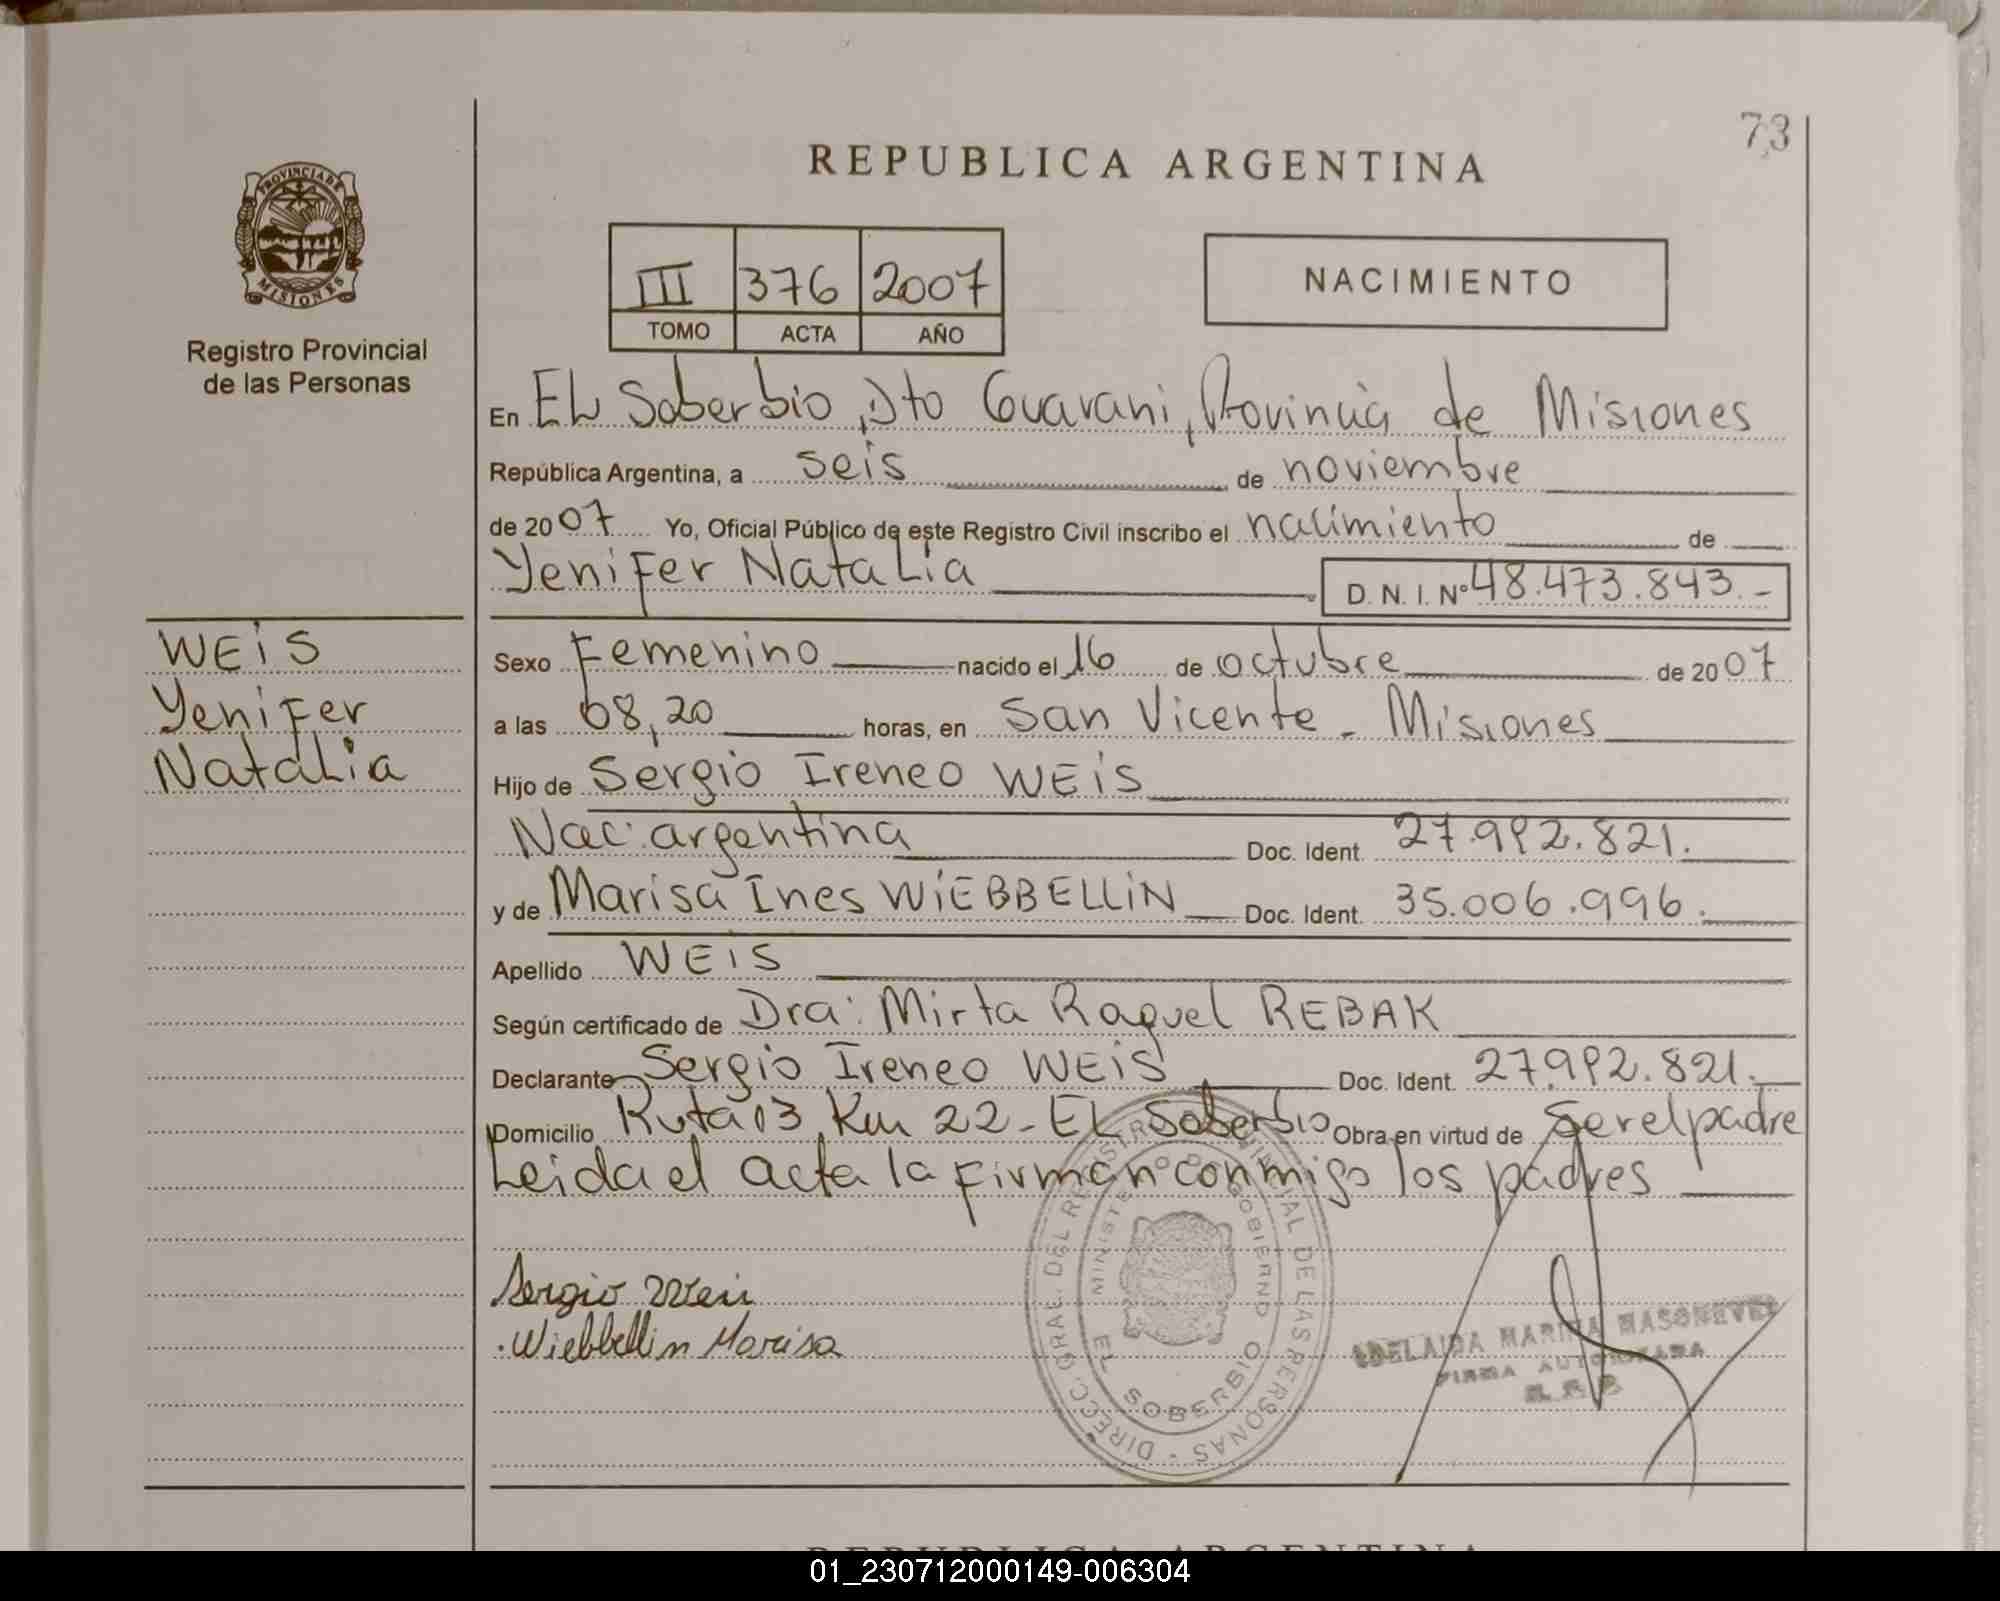 73
REPUBLICA ARGENTINA
PROVINCIA DE MISIONES
Registro Provincial
de las Personas
III 376 2007
TOMO ACTA AÑO
NACIMIENTO
En EL Soberbio, Dto Guarani, Provincia de Misiones
República Argentina, a seis de noviembre
de 2007 Yo, Oficial Público de este Registro Civil inscribo el nacimiento de
Yenifer Natalia D. N. I. Nº 48.473.843.-
WEiS
Yenifer
Natalia
Sexo Femenino nacido el 16 de octubre de 2007
a las 08,20 horas, en San Vicente - Misiones
Hijo de Sergio Ireneo WEiS
Nac: argentina Doc. Ident. 27.992.821.
y de Marisa Ines WiEBBELLiN Doc. Ident. 35.006.996.
Apellido WEiS
Según certificado de Dra: Mirta Raquel REBAK
Declarante Sergio Ireneo WEiS Doc. Ident. 27.992.821.
Domicilio Ruta 13 Km 22 - EL Soberbio Obra en virtud de Ser el padre
Leida el acta la firman conmigo los padres
Sergio Weis
Wiebbellin Marisa
DIRECC. GRAL. DEL REGISTRO PROVINCIAL DE LAS PERSONAS
MINISTERIO DE GOBIERNO
EL SOBERBIO
ADELAIDA MARINA
FIRMA AUTORIZADA
REPUBLICA ARGENTINA
01_230712000149-006304